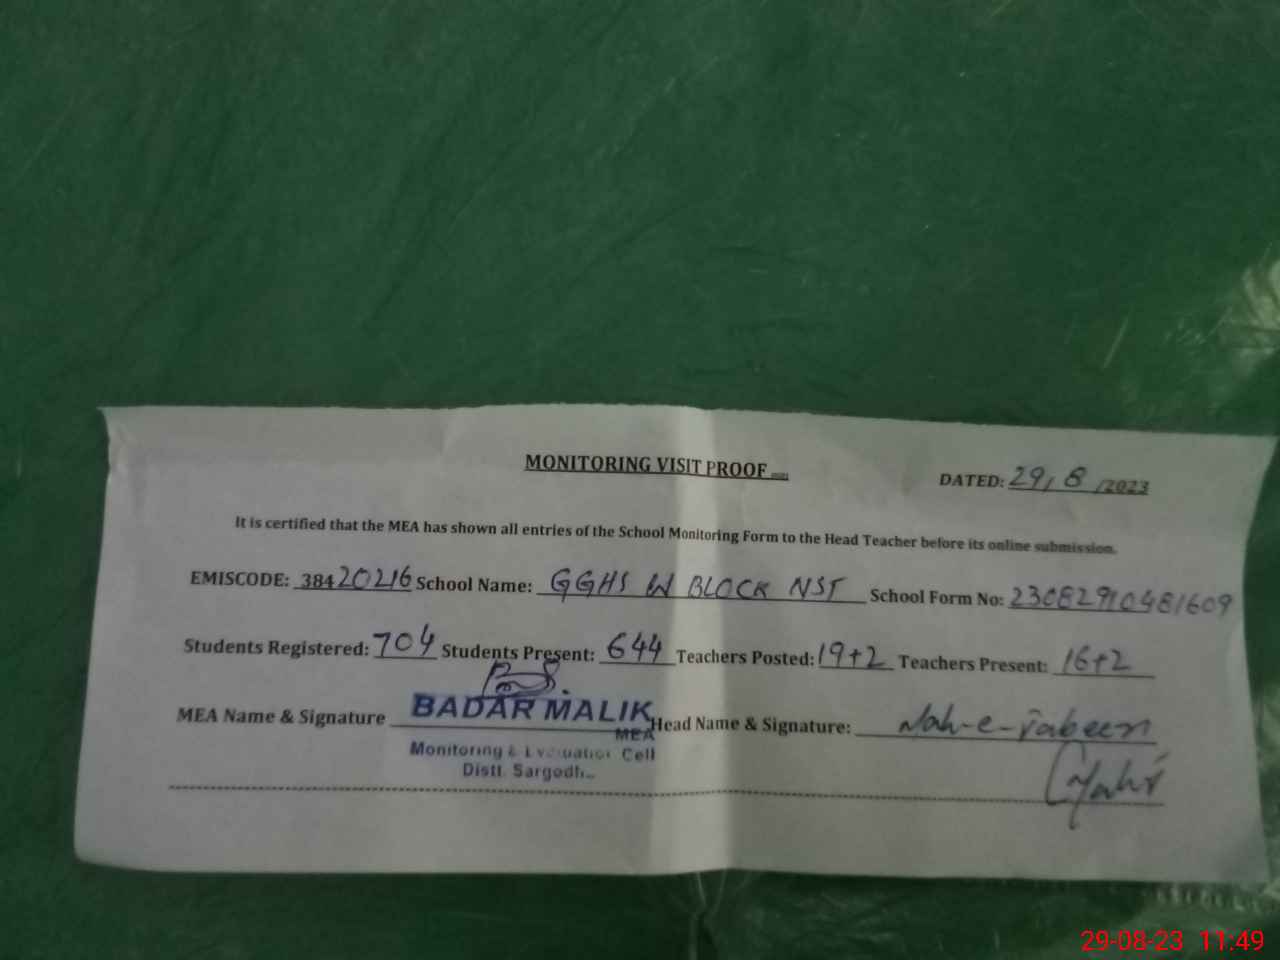 MONITORING VISIT PROOF
DATED: 29, 8 /2023
It is certified that the MEA has shown all entries of the School Monitoring Form to the Head Teacher before its online submission.
EMISCODE: 38420216 School Name: GGHS W BLOCK NST School Form No: 23082910481609
Students Registered: 704 Students Present: 644 Teachers Posted: 19+2 Teachers Present: 16+2
MEA Name & Signature BADAR MALIK Head Name & Signature: Mah-e-jabeen
MEA
Monitoring & Evaluation Cell
Distt. Sargodha
29-08-23 11:49